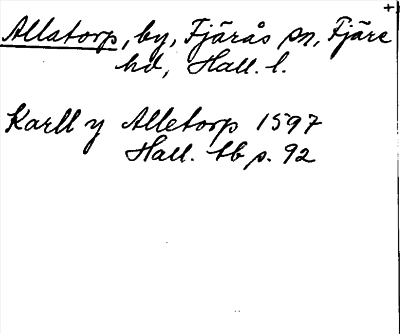 +
Allatorp, by, Fjärås sn, Fjäre
hd, Hall. l.
Karll y Alletorp 1597
Hall. tb p. 92